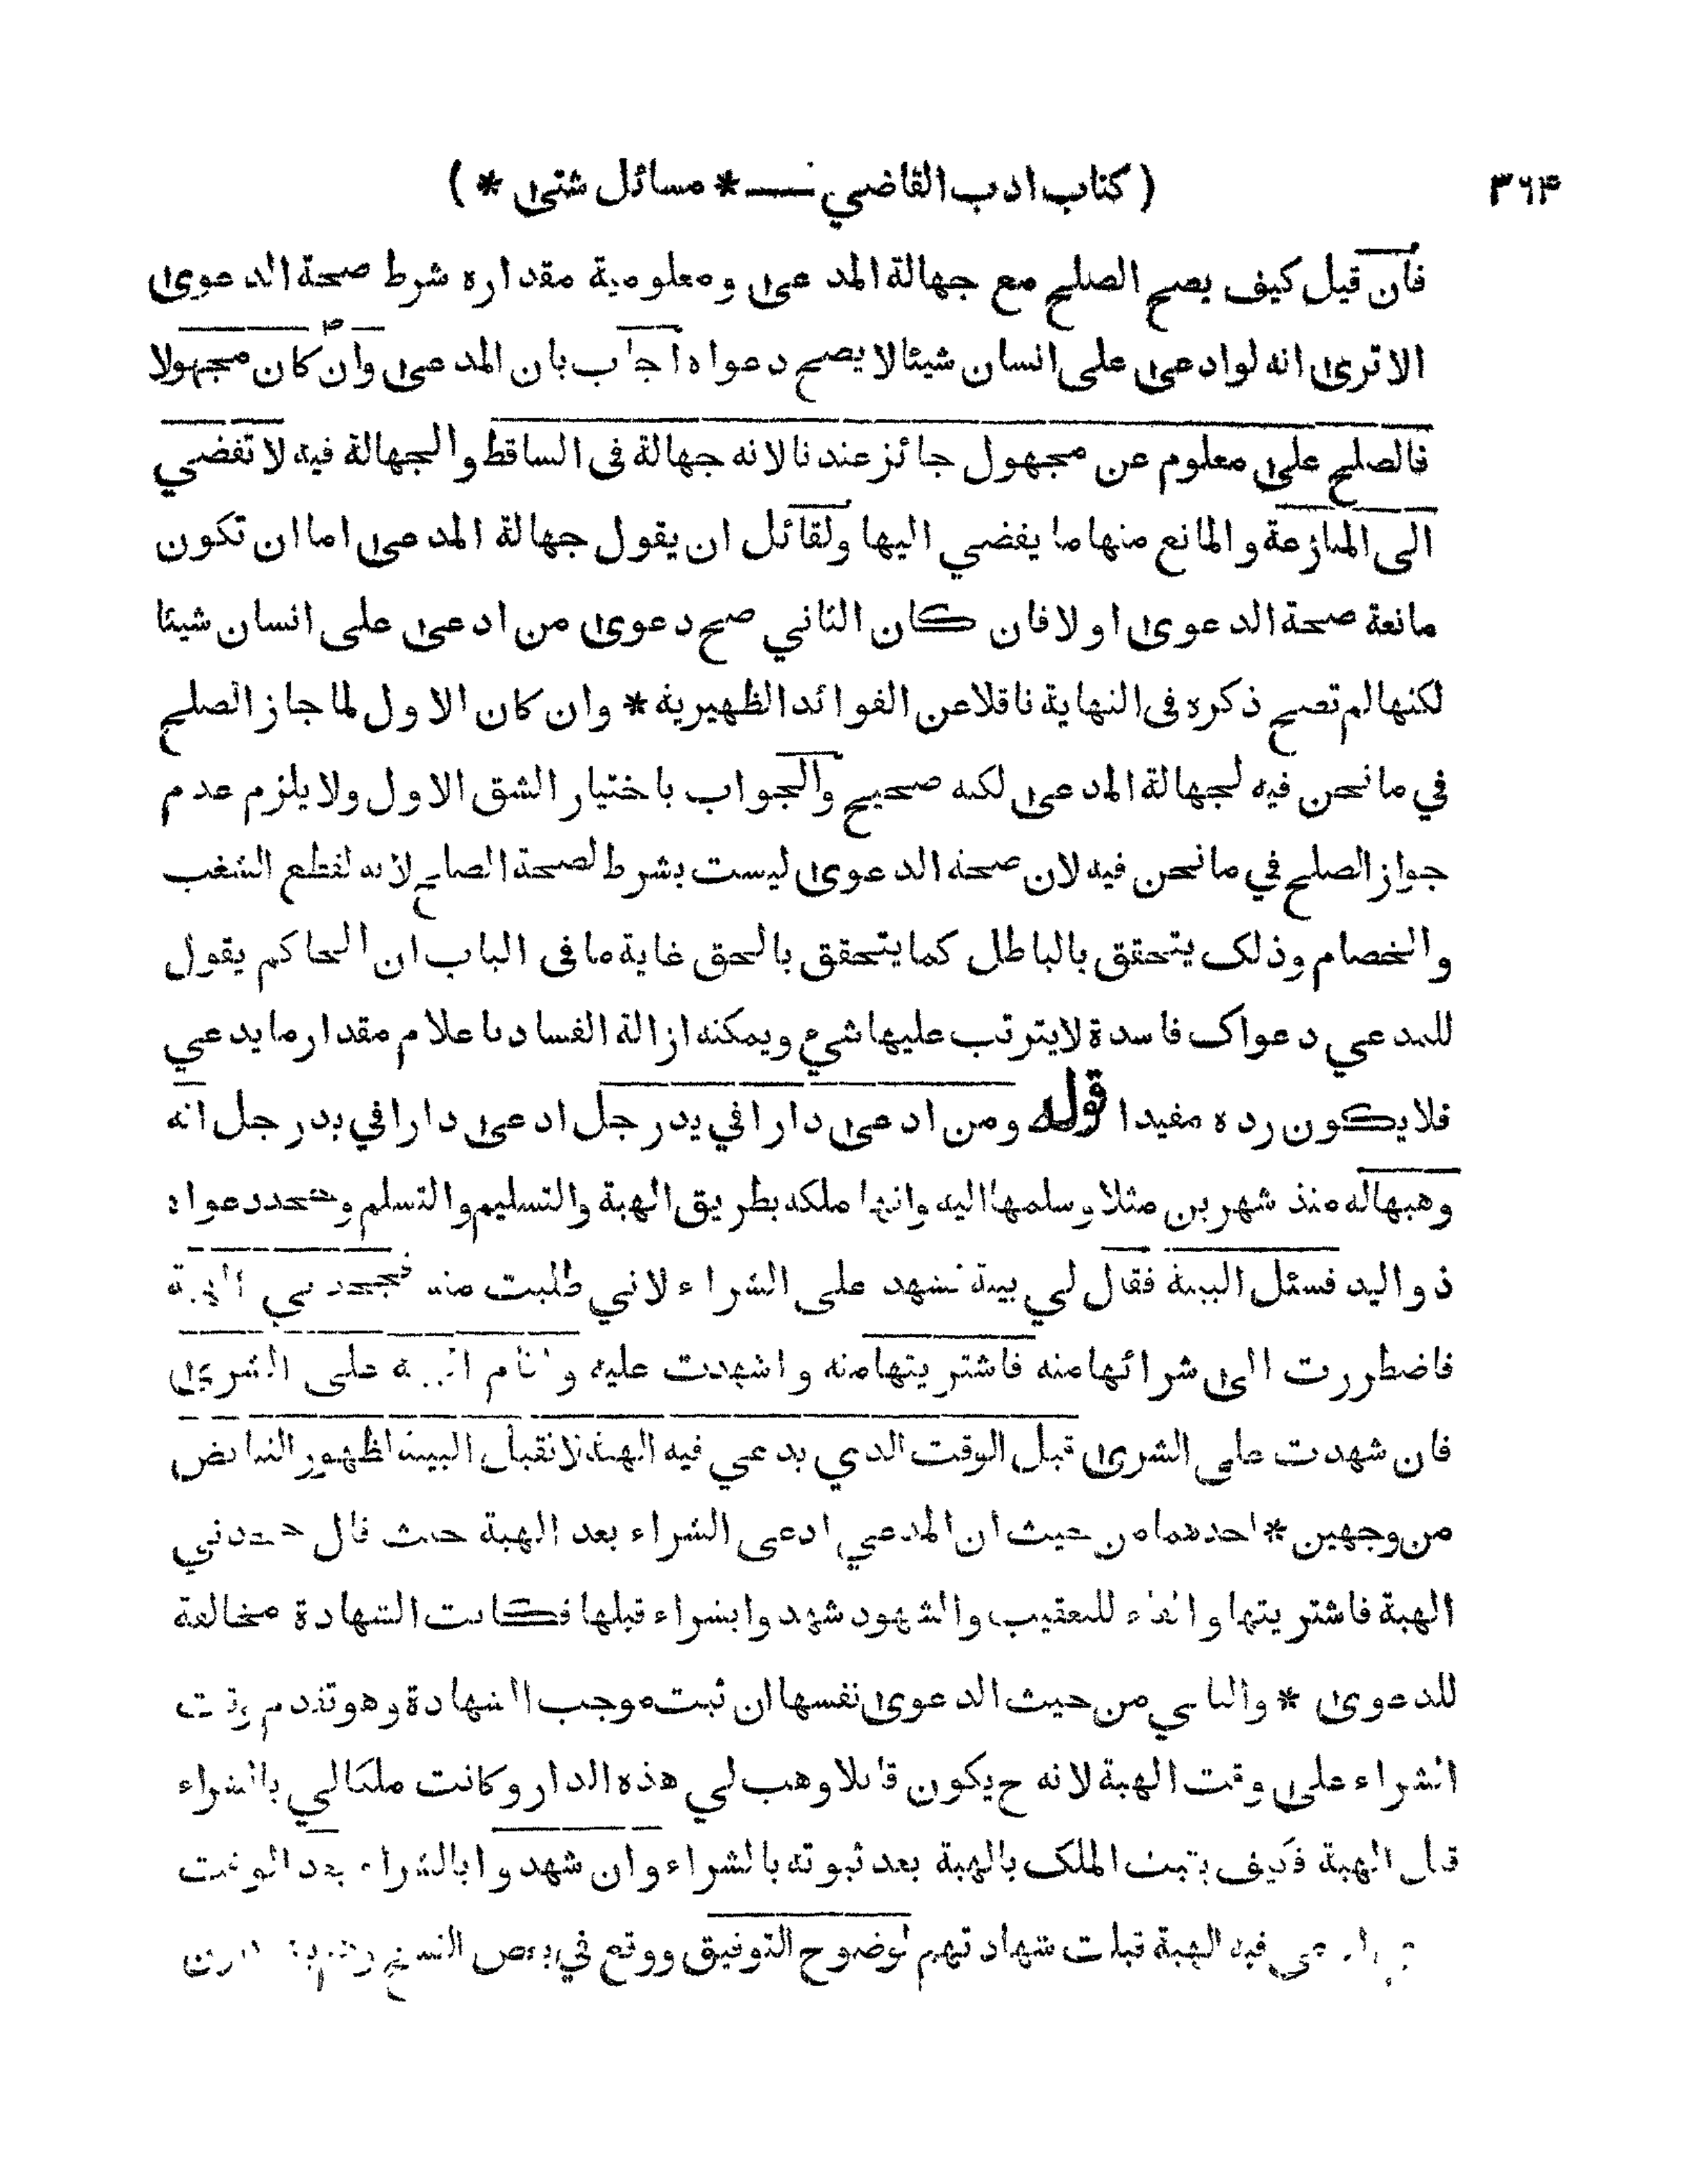 ( كتاب ادب القاضي — * مسائل شتى * ) ٣٦۴
فان قيل كيف يصح الصلح مع جهالة المدعى ومعلومية مقداره شرط صحة الدعوى
الا ترى انه لو ادعى على انسان شيئا لا يصح دعواه اجاب بان المدعى وان كان مجهولا
فالصلح على معلوم عن مجهول جائز عندنا لانه جهالة فى الساقط والجهالة فيه لا تفضي
الى المنازعة والمانع منها ما يفضي اليها ولقائل ان يقول جهالة المدعى اما ان تكون
مانعة صحة الدعوى او لا فان كان الثاني صح دعوى من ادعى على انسان شيئا
لكنها لم تصح ذكره فى النهاية ناقلا عن الفوائد الظهيرية * وان كان الاول لما جاز الصلح
في ما نحن فيه لجهالة المدعى لكنه صحيح والجواب باختيار الشق الاول ولا يلزم عدم
جواز الصلح في ما نحن فيه لان صحة الدعوى ليست بشرط لصحة الصلح لانه لقطع الشغب
والخصام وذلك يتحقق بالباطل كما يتحقق بالحق غاية ما فى الباب ان الحاكم يقول
للمدعي دعواك فاسدة لا يترتب عليها شيء ويمكنه ازالة الفساد باعلام مقدار ما يدعي
فلا يكون رده مفيدا قوله ومن ادعى دارا في يد رجل ادعى دارا في يد رجل انه
وهبها له منذ شهرين مثلا وسلمها اليه وانها ملكه بطريق الهبة والتسليم والتسلم وجحد دعواه
ذو اليد فسئل البينة فقال لي بينة تشهد على الشراء لاني طلبت منه فجحدني الهبة
فاضطررت الى شرائها منه فاشتريتها منه واشهدت عليه واقام البينة على الشرى
فان شهدت على الشرى قبل الوقت الذي يدعي فيه الهبة لا تقبل البينة لظهور التناقض
من وجهين * احدهما من حيث ان المدعي ادعى الشراء بعد الهبة حيث قال جحدني
الهبة فاشتريتها والفاء للتعقيب والشهود شهدوا بشراء قبلها فكانت الشهادة مخالفة
للدعوى * والثاني من حيث الدعوى نفسها ان ثبت موجب الشهادة وهو تقدم وقت
الشراء على وقت الهبة لانه ح يكون قائلا وهب لي هذه الدار وكانت ملكا لي بالشراء
قبل الهبة فكيف يثبت الملك بالهبة بعد ثبوته بالشراء وان شهدوا بالشراء بعد الوقت
فيه الهبة قبلت شهادتهم لوضوح التوفيق ووقع في بعض النسخ